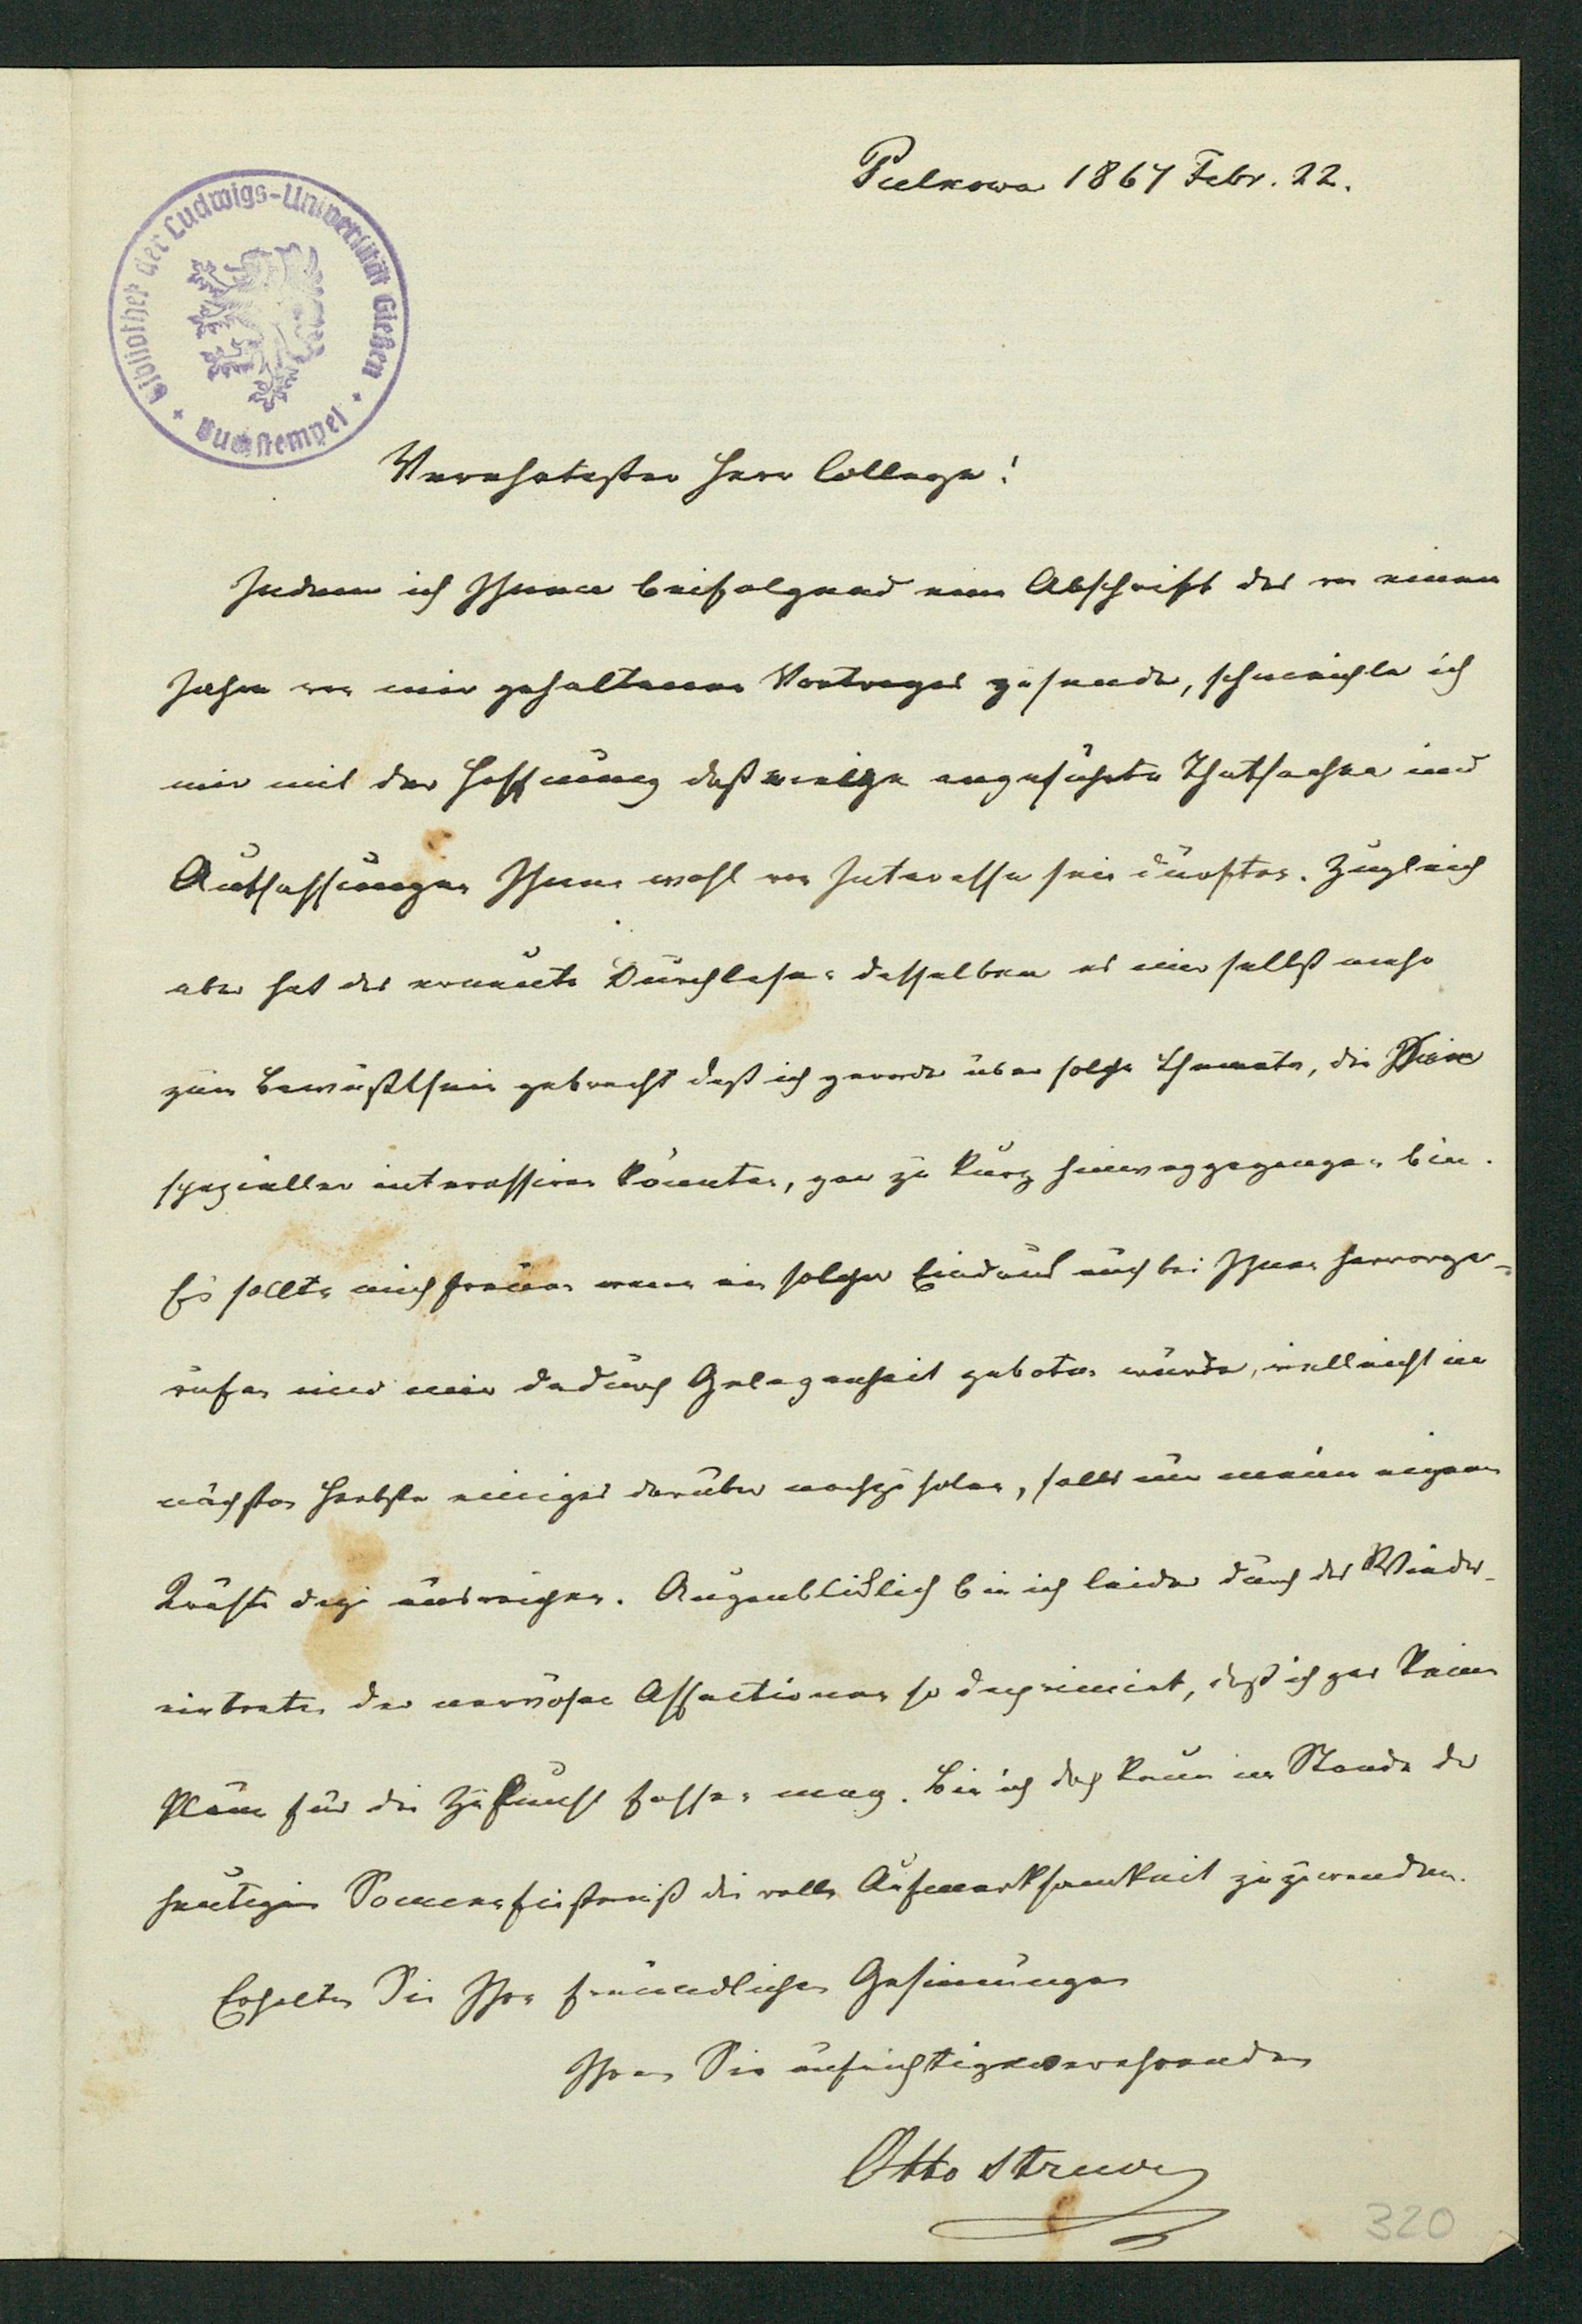 Pulkowa 1867 Febr. 22.
Bibliothek der Ludwigs-Universität Gießen
Buchstempel
Verehrtester Herr College!
Indem ich Ihnen beifolgend eine Abschrift des vor einem
Jahre von mir gehaltenen Vortrages zusende, schmeichle ich
mir mit der Hoffnung daß einige angeführte Thatsachen und
Auffassungen Ihnen wohl von Interesse sein dürften. Zugleich
aber hat das erneute Durchlesen desselben es mir selbst mehr
zum Bewußtsein gebracht daß ich gerade über solche Themata, die Sie
spezieller interessiren könnten, gar zu kurz hinweggegangen bin.
Es sollte mich freuen wenn ein solcher Eindruck auch bei Ihnen hervorge-
rufen und mir dadurch Gelegenheit geboten würde, vielleicht im
nächsten Herbste einiges darüber nachzuholen, falls nur meine eigenen
Kräfte dazu ausreichen. Augenblicklich bin ich leider durch das Wieder-
eintreten der nervösen Affectionen so deprimirt, daß ich gar keine
Pläne für die Zukunft fassen mag. Bin ich doch kaum im Stande der
heutigen Sonnenfinsterniß die volle Aufmerksamkeit zuzuwenden.
Erhalten Sie Ihre freundlichen Gesinnungen
Ihrem Sie aufrichtig verehrenden
Otto Struve
320